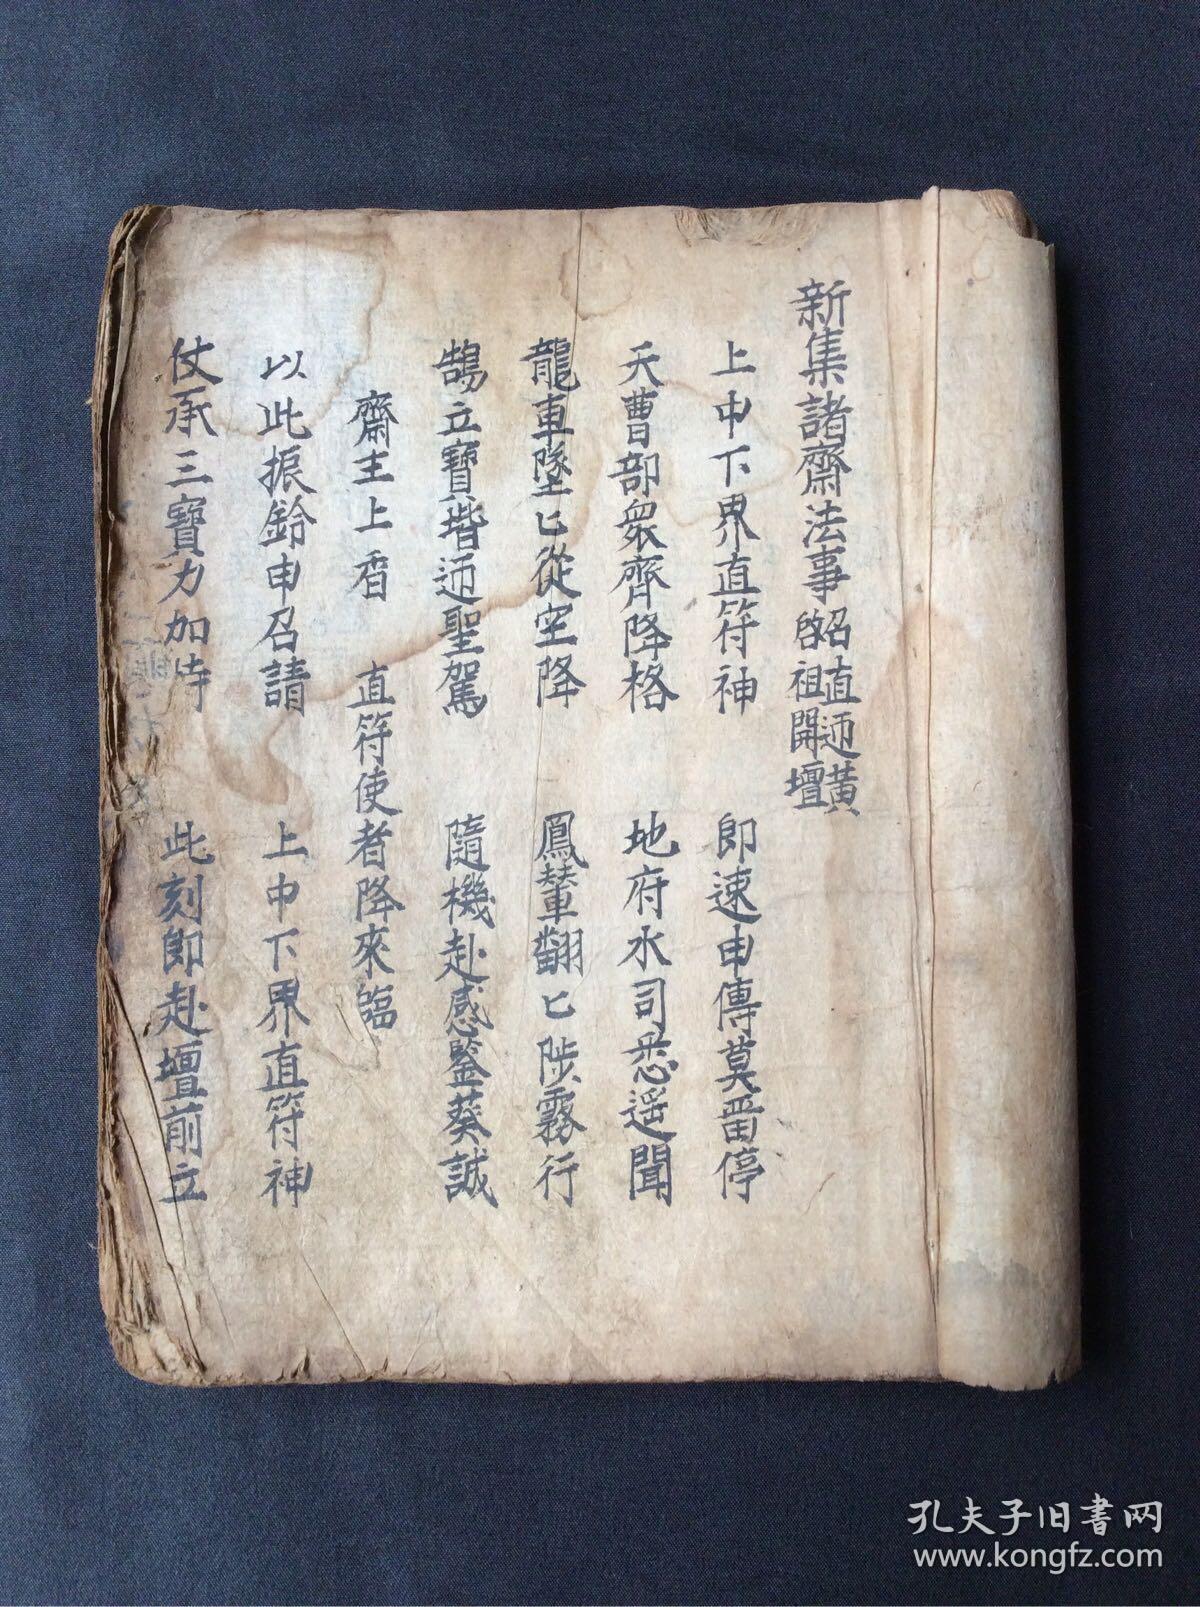 新集諸齋法事 召直迊黃
啓祖開壇
上中下界直符神 即速申傳莫畱停
天曹部衆齊降格 地府水司悉遥聞
龍車墜匕從空降 鳳輦翻匕陟霧行
鵠立寶堦迊聖駕 隨機赴感鑒葵誠
齋主上香 直符使者降來臨
以此振鈴申召請 上中下界直符神
仗承三寶力加持 此刻即赴壇前立
孔夫子旧书网
www.kongfz.com